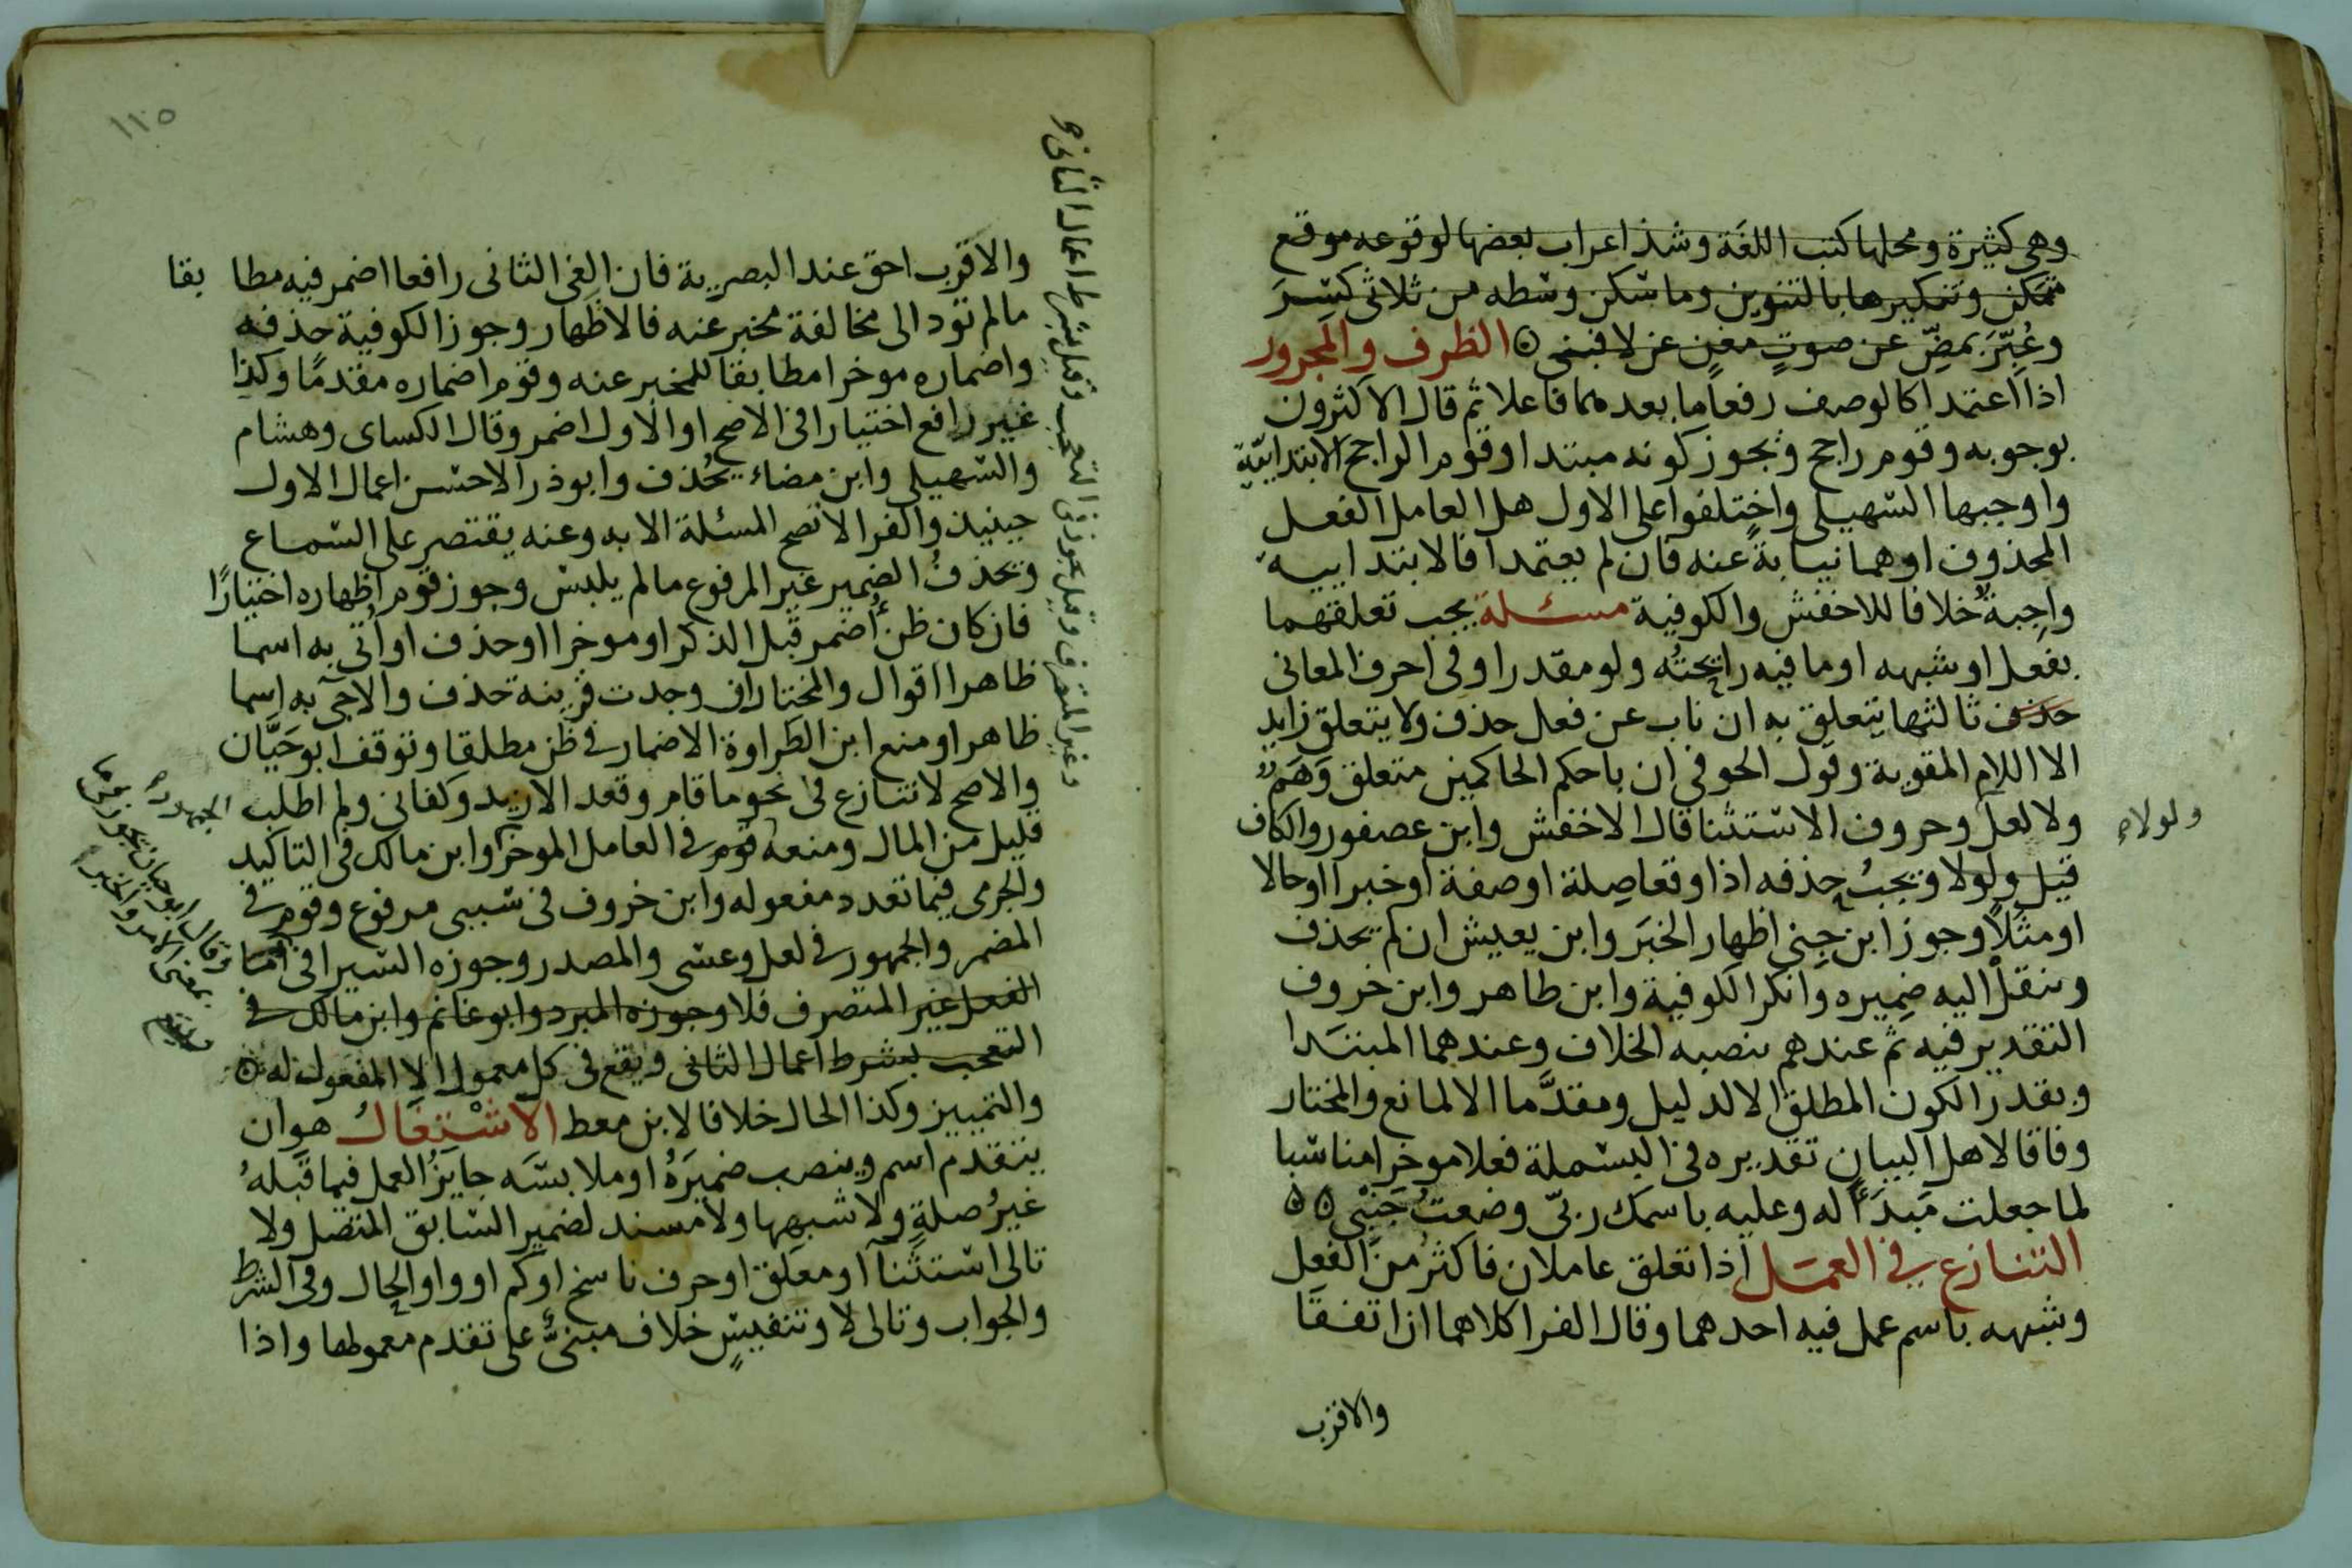 وهي كثيرة ومحلها كتب اللغة وشذ اعراب بعضها لوقوعه موقع
متمكن وتنكيرها بالتنوين وما سكن وسطه من ثلاثي كسر
وعبر بمض عن صوت مغن عن لا فبني ۞ الظرف والمجرور
اذا اعتمدا كالوصف رفعا ما بعدهما فاعلا ثم قال الاكثرون
بوجوبه وقوم راجح ويجوز كونه مبتدا وقوم الراجح الابتدايية
واوجبها السهيلي واختلفوا على الاول هل العامل الفعل
المحذوف او هما نيابة عنه فان لم يعتمدا فالابتداييه
واجبة خلافا للاخفش والكوفية مسئلة يجب تعلقهما
بفعل او شبهه او ما فيه رايحته ولو مقدرا وفي احرف المعاني
حذف ثالثها يتعلق به ان ناب عن فعل حذف ولا يتعلق زايد
الا اللام المقوية وقول الحوفي ان باحكم الحاكمين متعلق وهم
ولا لعل وحروف الاستثنا قال الاخفش وابن عصفور والكاف
ولولا
قيل ولولا ويجب حذفه اذا وقعا صلة او صفة او خبرا او حالا
او مثلا وجوز ابن جني اظهار الخبر وابن يعيش ان لم يحذف
وينقل اليه ضميره وانكر الكوفية وابن طاهر وابن خروف
التقدير فيه ثم عندهم ينصبه الخلاف وعندهما المبتدا
ويقدر الكون المطلق الا لدليل ومقدما الا لمانع والمختار
وفاقا لاهل البيان تقديره في البسملة فعلا موخرا مناسبا
لما جعلت مبدأ له وعليه باسمك ربي وضعت جنبي ۞۞
التنازع في العمل اذا تعلق عاملان فاكثر من الفعل
وشبهه باسم عمل فيه احدهما وقال الفرا كلاهما ان اتفقا
والاقرب
١١٥
والاقرب احق عند البصرية فان الغي الثاني رافعا اضمر فيه مطابقا
ما لم تود الى مخالفة مخبر عنه فالاظهار وجوز الكوفية حذفه
واضماره موخرا مطابقا للمخبر عنه وقوم اضماره مقدما وكذا
غير رافع اختيارا في الاصح او الاول اضمر وقال الكساى وهشام
والسهيلي وابن مضاء يحذف وابو ذر الاحسن اعمال الاول
حينيذ والفرا لا تصح المسئلة الا به وعنه يقتصر على السماع
ويحذف الضمير غير المرفوع ما لم يلبس وجوز قوم اظهاره اختيارا
فان كان ظن أضمر قبل الذكر او موخرا او حذف او أتي به اسما
ظاهرا اقوال والمختار ان وجدت قرينة حذف والا جئ به اسما
ظاهرا ومنع ابن الطراوة الاضمار في ظن مطلقا وتوقف ابو حيان
والاصح لا تنازع في نحو ما قام وقعد الا زيد وكفاني ولم اطلب
قليل من المال ومنعه قوم في العامل الموخر وابن مالك في التاكيد
والجرمي فيما تعدد مفعوله وابن خروف في سببي مرفوع وقوم في
المضمر والجمهور في لعل وعسى والمصدر وجوزه السيرافي اما
الفعل غير المتصرف فلا وجوزه المبرد وابو غانم وابن مالك في
التعجب بشرط اعمال الثاني ويقع في كل معمول الا المفعول له
والتمييز وكذا الحال خلافا لابن معط الاشتغال هو ان
يتقدم اسم وينصب ضميره او ملابسه جايز العمل فيما قبله
غير صلة ولا شبهها ولا مسند لضمير السابق المتصل ولا
تالي استثنآ او معلق او حرف ناسخ او كم او واو الحال وفي الشرط
والجواب وتالي لا وتنفيس خلاف مبني على تقدم معمولها واذا
وغير المتصرف وقيل يجوز في التعجب وقيل بشرط اعمال الثاني